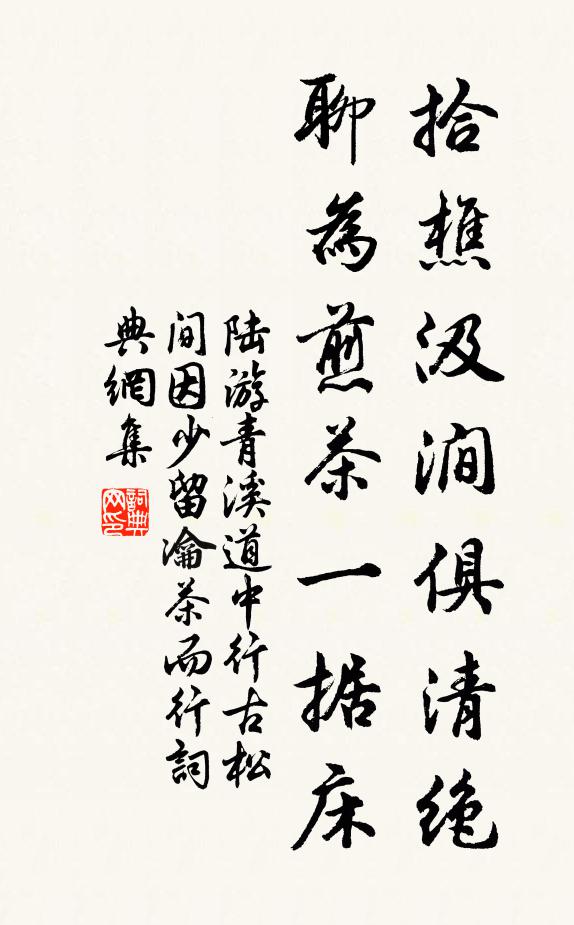 拾樵汲澗俱清绝
聊為煎茶一据床
陆游青溪道中行古松
间因少留瀹茶而行詞
典網集
詞典网印